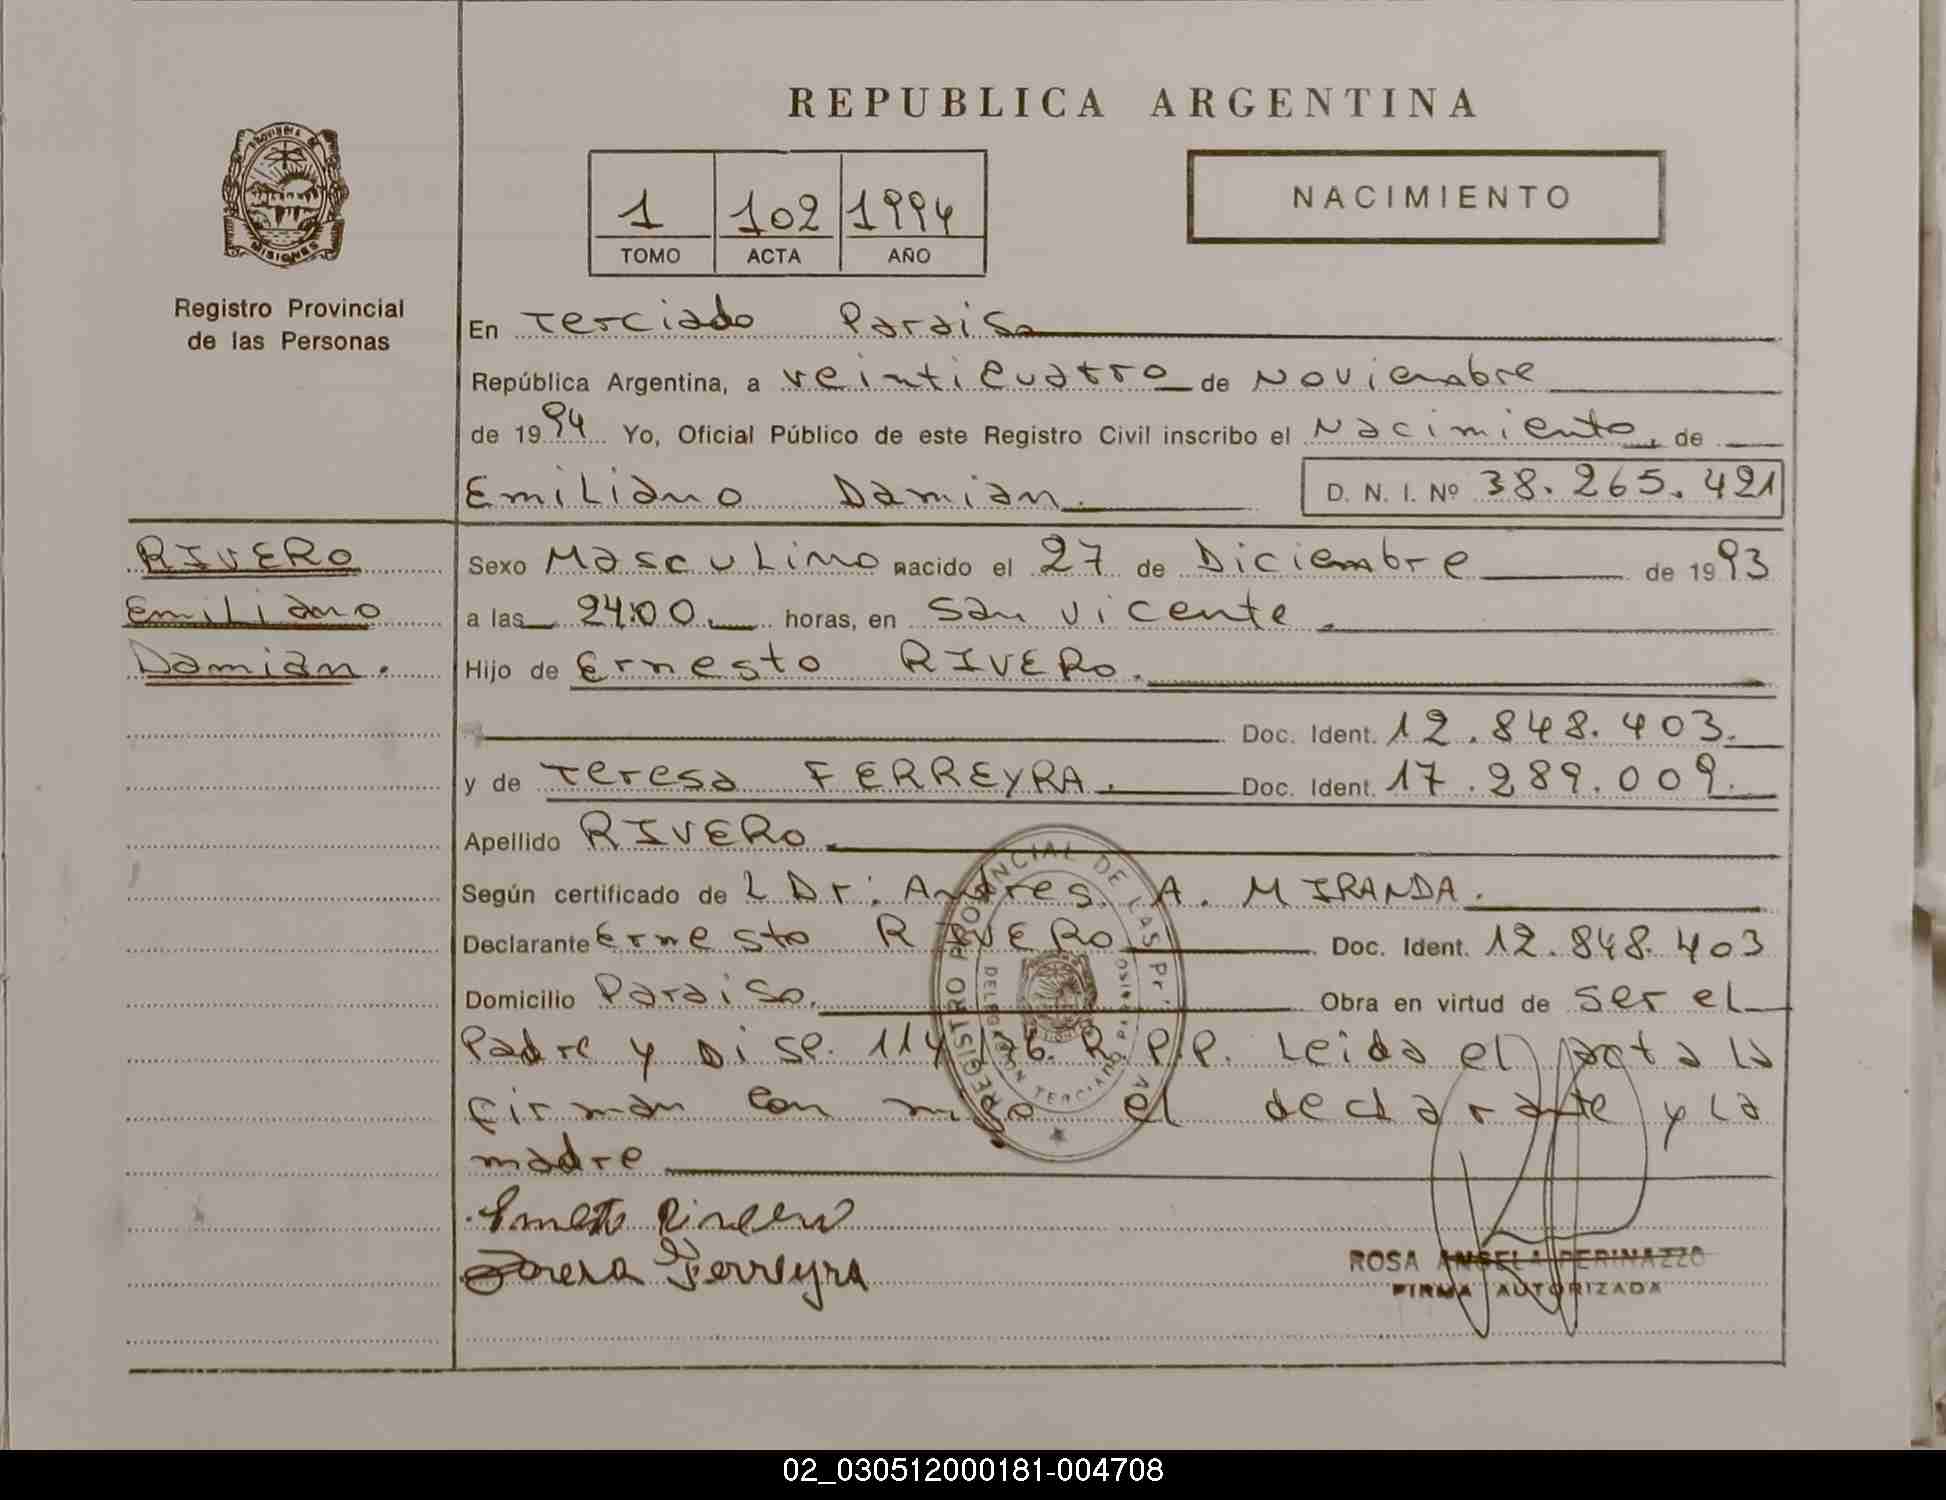 REPUBLICA ARGENTINA
PROVINCIA DE
MISIONES
Registro Provincial
de las Personas
1 102 1994
TOMO ACTA AÑO
NACIMIENTO
En Terciado Paraiso
República Argentina, a veinticuatro de Noviembre
de 1994 Yo, Oficial Público de este Registro Civil inscribo el Nacimiento, de
Emiliano Damian. D. N. I. Nº 38.265.421
RIVERO
Emiliano
Damian.
Sexo Masculino nacido el 27 de Diciembre de 1993
a las 24:00 horas, en San Vicente.
Hijo de Ernesto RIVERO.
Doc. Ident. 12.848.403.
y de Teresa FERREYRA. Doc. Ident. 17.289.009.
Apellido RIVERO.
Según certificado de L Dr. Andres A. MIRANDA.
Declarante Ernesto RIVERO Doc. Ident. 12.848.403
Domicilio Paraiso. Obra en virtud de ser el
Padre y Disp. 114/76. R.P.P. Leida el acta la
firman con migo el declarante y la
madre
REGISTRO PROVINCIAL DE LAS
DELEGACION TERCIADO PARAISO
Ernesto Rivero
Teresa Ferreyra
ROSA ANGELA PERINAZZO
FIRMA AUTORIZADA
02_030512000181-004708